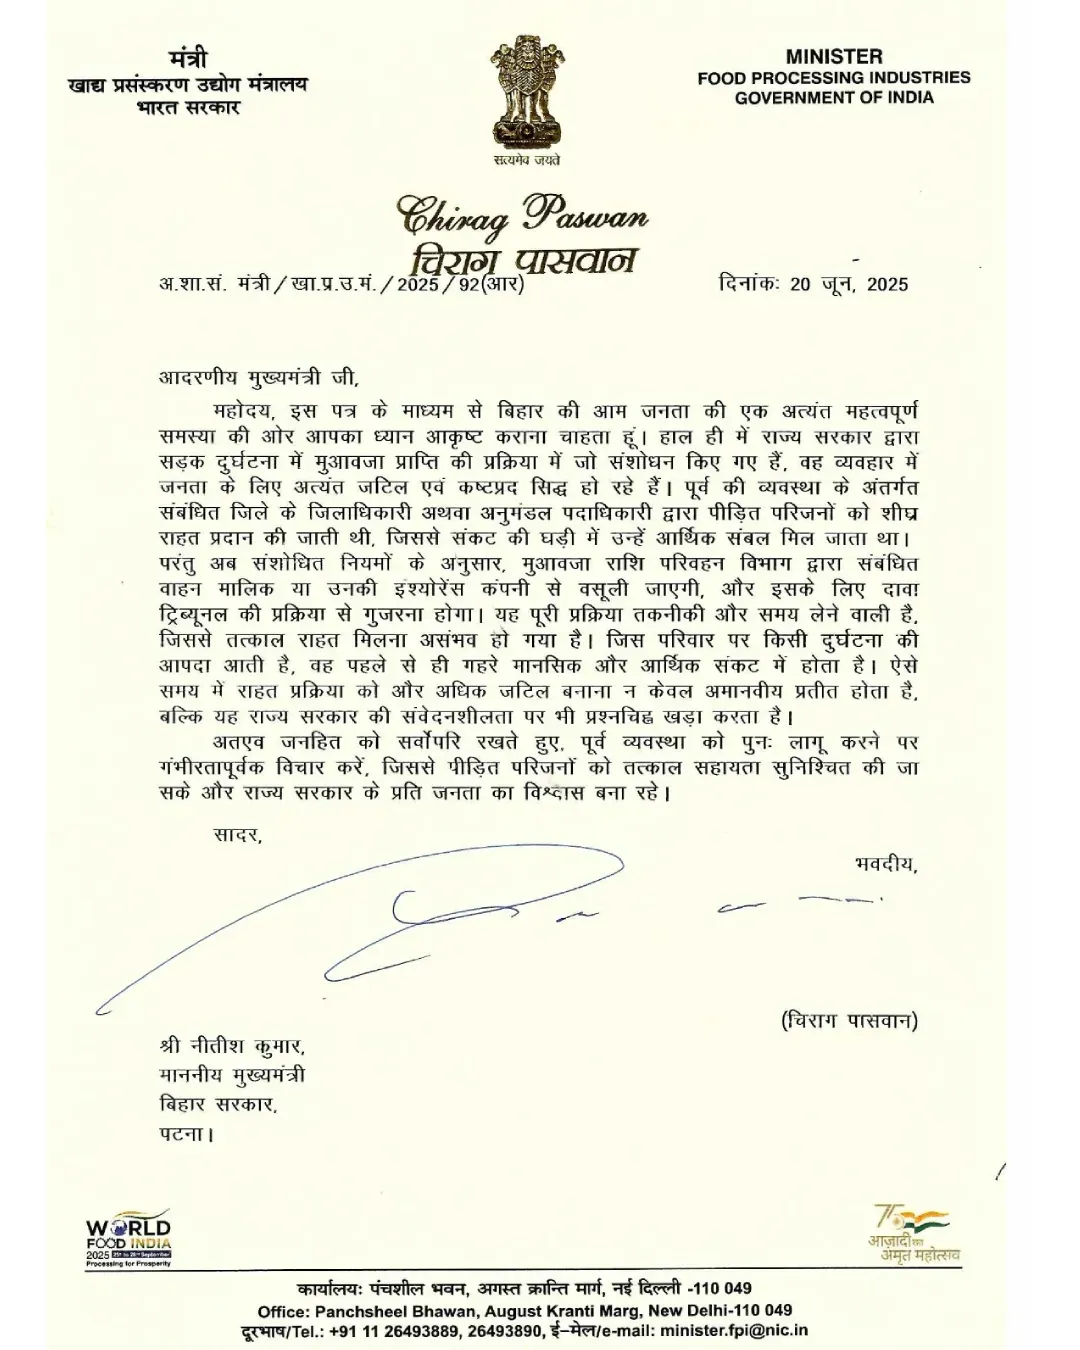 मंत्री
खाद्य प्रसंस्करण उद्योग मंत्रालय
भारत सरकार
सत्यमेव जयते
MINISTER
FOOD PROCESSING INDUSTRIES
GOVERNMENT OF INDIA
Chirag Paswan
चिराग पासवान
अ.शा.सं. मंत्री/खा.प्र.उ.मं./2025/92(आर)
दिनांकः 20 जून, 2025
आदरणीय मुख्यमंत्री जी,
महोदय, इस पत्र के माध्यम से बिहार की आम जनता की एक अत्यंत महत्वपूर्ण
समस्या की ओर आपका ध्यान आकृष्ट कराना चाहता हूं। हाल ही में राज्य सरकार द्वारा
सड़क दुर्घटना में मुआवजा प्राप्ति की प्रक्रिया में जो संशोधन किए गए हैं, वह व्यवहार में
जनता के लिए अत्यंत जटिल एवं कष्टप्रद सिद्ध हो रहे हैं। पूर्व की व्यवस्था के अंतर्गत
संबंधित जिले के जिलाधिकारी अथवा अनुमंडल पदाधिकारी द्वारा पीड़ित परिजनों को शीघ्र
राहत प्रदान की जाती थी, जिससे संकट की घड़ी में उन्हें आर्थिक संबल मिल जाता था।
परंतु अब संशोधित नियमों के अनुसार, मुआवजा राशि परिवहन विभाग द्वारा संबंधित
वाहन मालिक या उनकी इंश्योरेंस कंपनी से वसूली जाएगी, और इसके लिए दावा
ट्रिब्यूनल की प्रक्रिया से गुजरना होगा। यह पूरी प्रक्रिया तकनीकी और समय लेने वाली है,
जिससे तत्काल राहत मिलना असंभव हो गया है। जिस परिवार पर किसी दुर्घटना की
आपदा आती है, वह पहले से ही गहरे मानसिक और आर्थिक संकट में होता है। ऐसे
समय में राहत प्रक्रिया को और अधिक जटिल बनाना न केवल अमानवीय प्रतीत होता है,
बल्कि यह राज्य सरकार की संवेदनशीलता पर भी प्रश्नचिह्न खड़ा करता है।
अतएव जनहित को सर्वोपरि रखते हुए, पूर्व व्यवस्था को पुनः लागू करने पर
गंभीरतापूर्वक विचार करें, जिससे पीड़ित परिजनों को तत्काल सहायता सुनिश्चित की जा
सके और राज्य सरकार के प्रति जनता का विश्वास बना रहे।
सादर,
भवदीय,
(चिराग पासवान)
श्री नीतीश कुमार,
माननीय मुख्यमंत्री
बिहार सरकार,
पटना।
WORLD
FOOD INDIA
2025 25th to 28th September
Processing for Prosperity
75
आज़ादी का
अमृत महोत्सव
कार्यालयः पंचशील भवन, अगस्त क्रान्ति मार्ग, नई दिल्ली -110 049
Office: Panchsheel Bhawan, August Kranti Marg, New Delhi-110 049
दूरभाष/Tel.: +91 11 26493889, 26493890, ई–मेल/e-mail: minister.fpi@nic.in